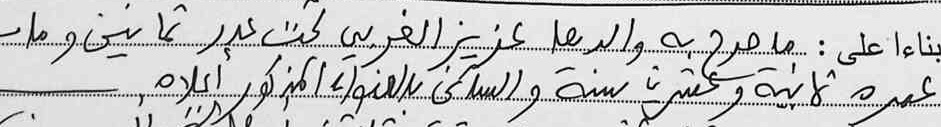 بناءا على : ما صرح به والدها عزيز الغربي تحت عدد ثمانين و مائة
عمره ثمانية وعشرين سنة و الساكن بالعنوان المذكور أعلاه